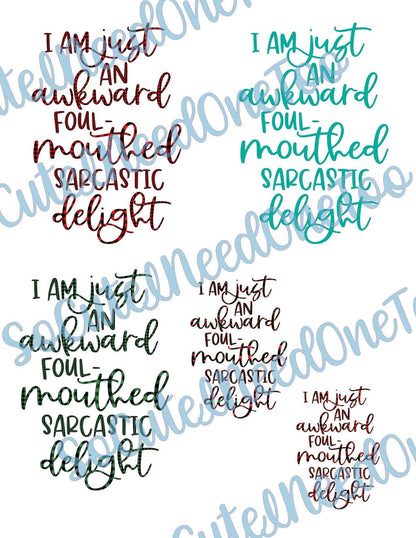 I AM just
AN
awkward
FOUL-
mouthed
SARCASTIC
delight
I AM just
AN
awkward
FOUL-
mouthed
SARCASTIC
delight
I AM just
AN
awkward
FOUL-
mouthed
SARCASTIC
delight
I AM just
AN
awkward
FOUL-
mouthed
SARCASTIC
delight
I AM just
AN
awkward
FOUL-
mouthed
SARCASTIC
delight
CuteINeedOneToo
SoCuteINeedOneToo
SoCuteINeedOneToo
CuteINeed